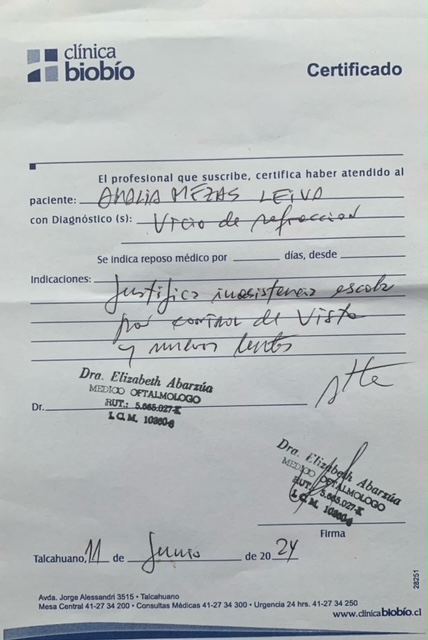 clínica
biobío
Certificado
El profesional que suscribe, certifica haber atendido al
paciente: Analia Mezas Leiva
con Diagnóstico (s): Vicio de refraccion
Se indica reposo médico por ______ días, desde ______
Indicaciones: Justifica inasistencia escolar
por control de vista
y nuevos lentes
Atte
Dra. Elizabeth Abarzúa
MEDICO OFTALMOLOGO
RUT.: 5.665.027-K
I.C.M. 10260-6
Dr.
Dra. Elizabeth Abarzúa
MEDICO OFTALMOLOGO
RUT.: 5.665.027-K
I.C.M. 10260-6
Firma
Talcahuano, 11 de Junio de 20 24
28251
Avda. Jorge Alessandri 3515 • Talcahuano
Mesa Central 41-27 34 200 • Consultas Médicas 41-27 34 300 • Urgencia 24 hrs. 41-27 34 250
www.clinicabiobío.cl